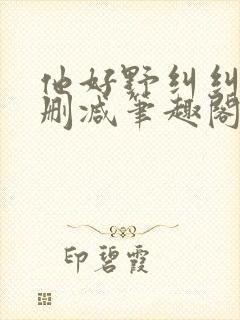 他好野纠纠
删减笔趣阁
印碧霞